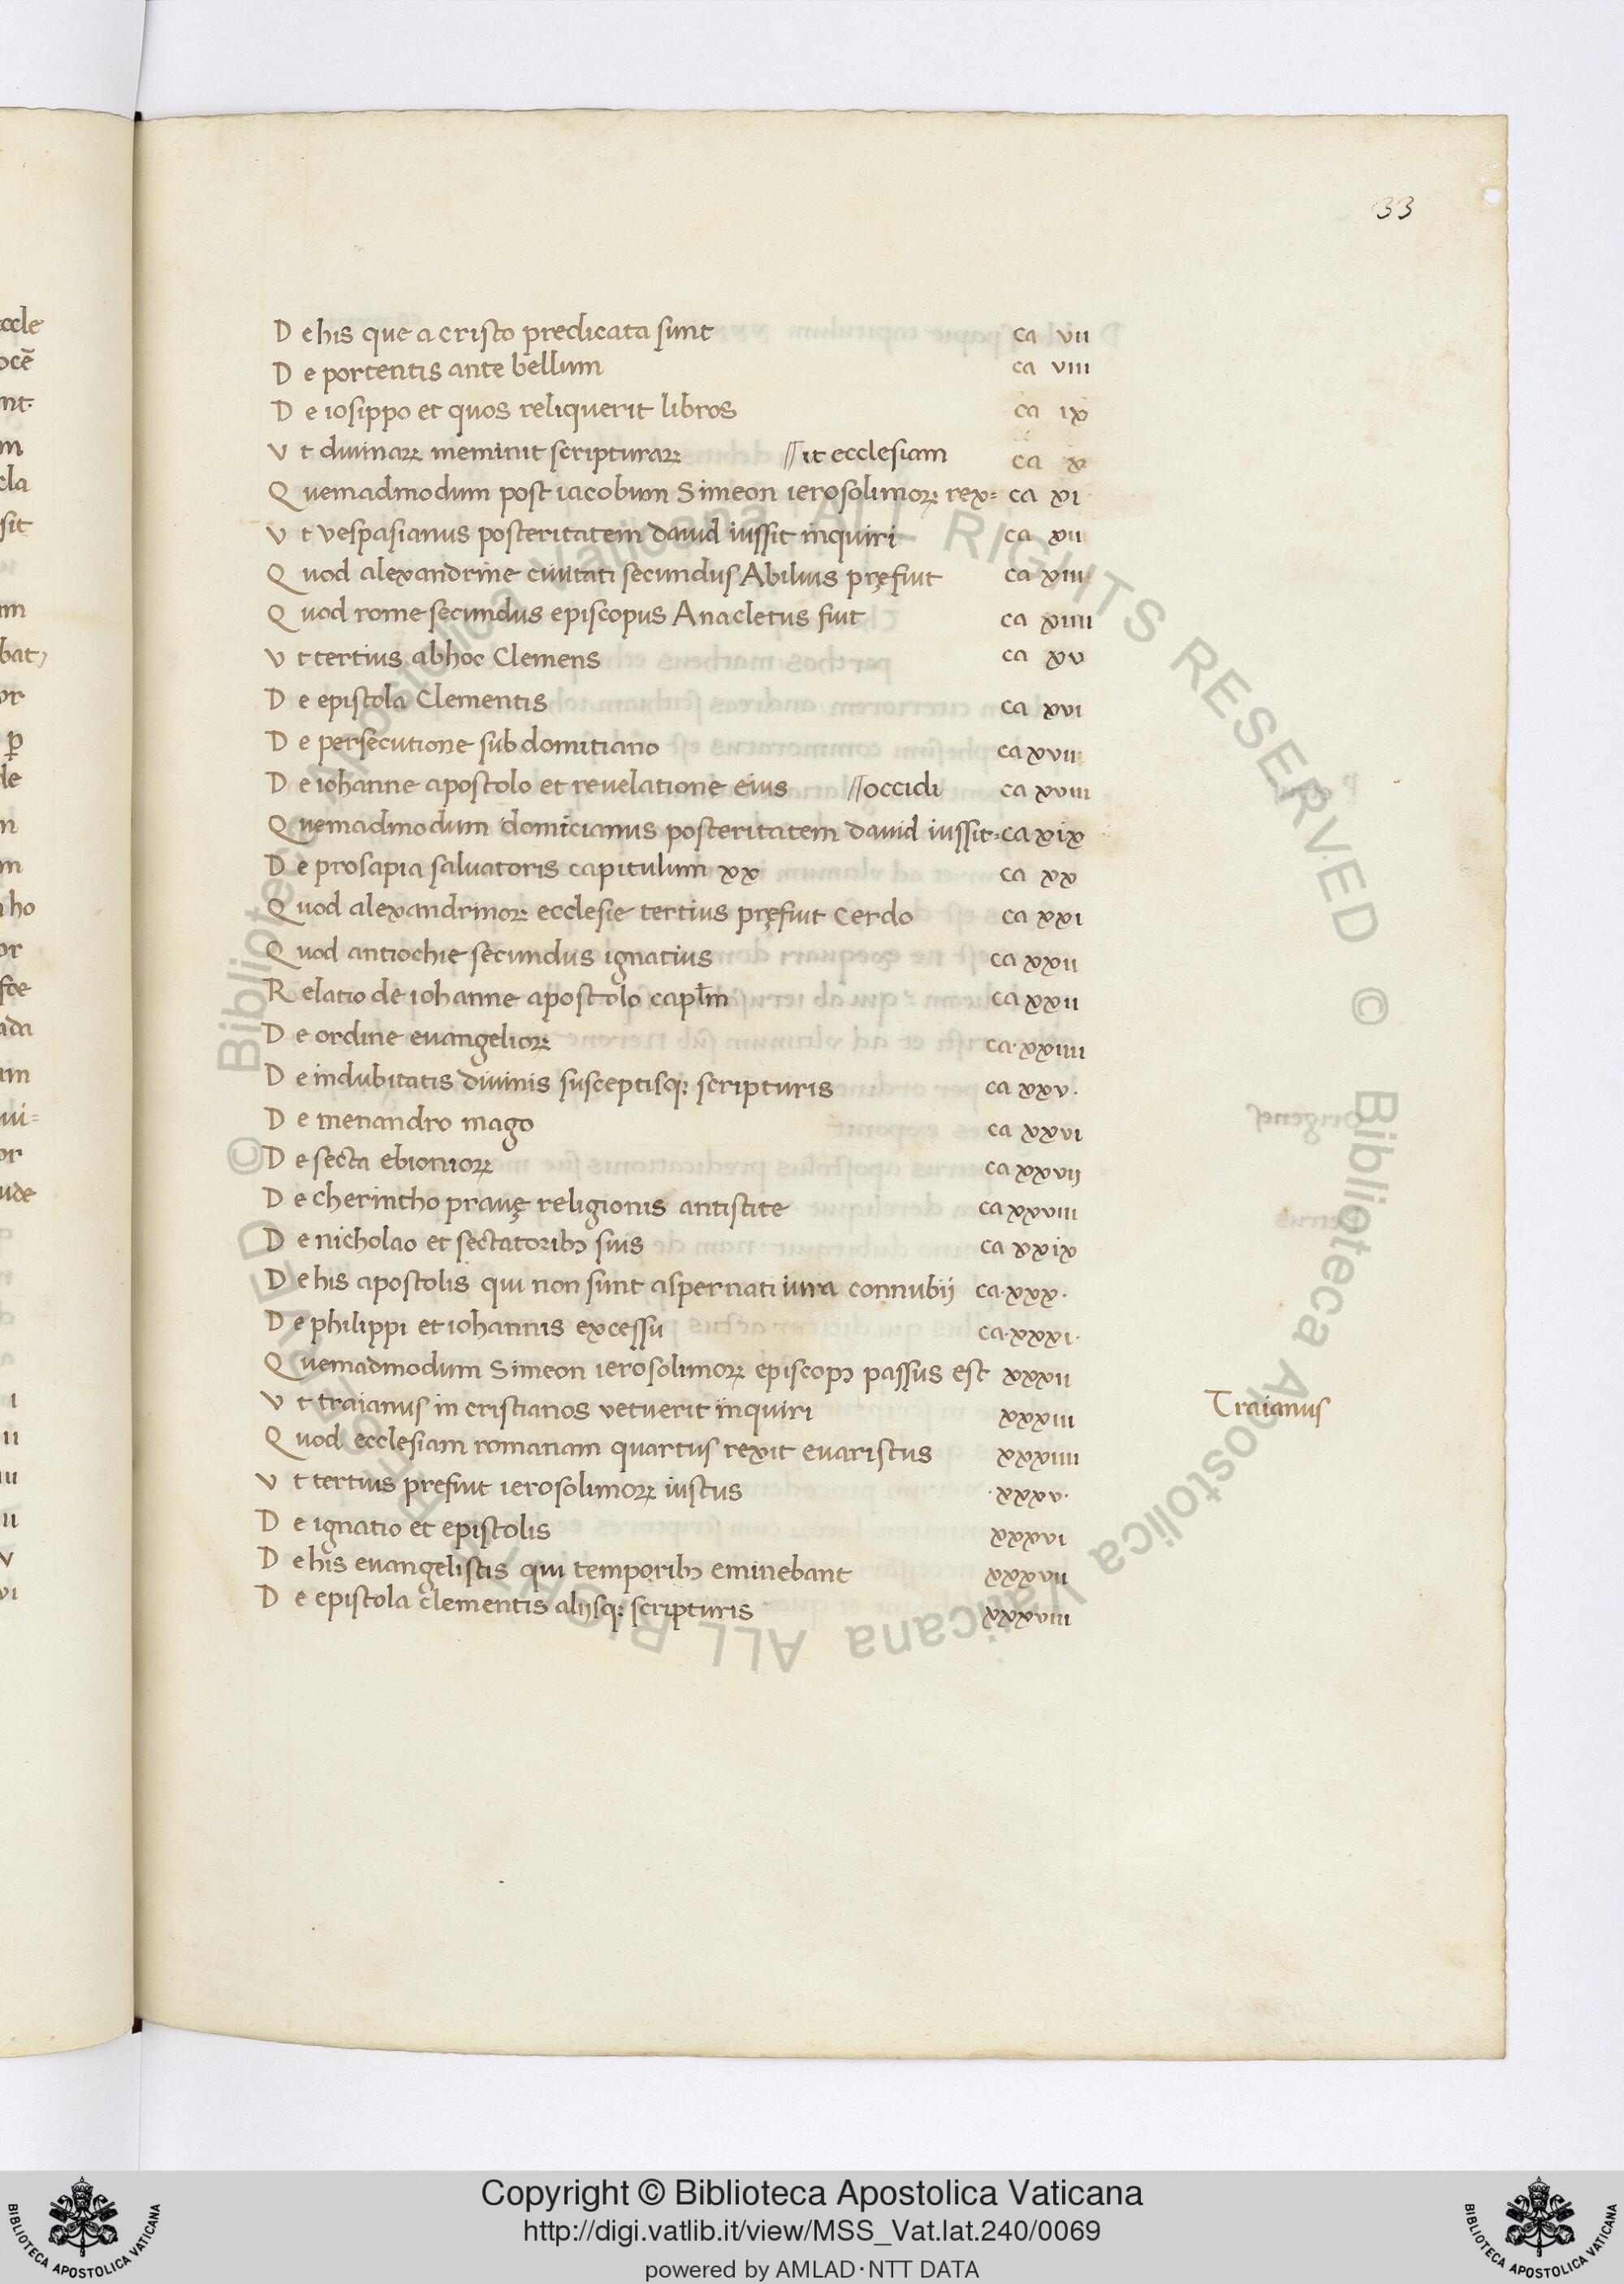 33
De his que a cristo predicata sunt ca vii
De portentis ante bellum ca viii
De iosippo et quos reliquerit libros ca ix
Vt diuinaꝝ meminit scripturaꝝ //it ecclesiam ca x
Quemadmodum post iacobum Simeon ierosolimoꝝ rex= ca xi
Vt vespasianus posteritatem dauid iussit inquiri ca xii
Quod alexandrine ciuitati secundus Abilius pręfuit ca xiii
Quod rome secundus episcopus Anacletus fuit ca xiiii
Vt tertius ab hoc Clemens ca xv
De epistola Clementis ca xvi
De persecutione sub domitiano ca xvii
De iohanne apostolo et reuelatione eius //occidi ca xviii
Quemadmodum domicianus posteritatem dauid iussit= ca xix
De prosapia saluatoris capitulum xx ca xx
Quod alexandrinoꝝ ecclesie tertius pręfuit Cerdo ca xxi
Quod antiochie secundus ignatius ca xxii
Relatio de iohanne apostolo capłm ca xxii
De ordine euangelioꝝ ca·xxiiii
De indubitatis diuinis susceptisqꝫ scripturis ca xxv·
De menandro mago ca xxvi
De secta ebionioꝝ ca xxvij
De cherintho prauę religionis antistite ca xxviii
De nicholao et sectatoribꝫ suis ca xxix
De his apostolis qui non sunt aspernati iura connubij ca·xxx·
De philippi et iohannis excessu ca·xxxi·
Quemadmodum Simeon ierosolimoꝝ episcopꝰ passus est xxxii
Vt traianus in cristianos vetuerit inquiri xxxiii
Traianus
Quod ecclesiam romanam quartus rexit euaristus xxxiiii
Vt tertius prefuit ierosolimoꝝ iustus ·xxxv·
De ignatio et epistolis xxxvi
De his euangelistis qui temporibꝫ eminebant xxxvii
De epistola clementis alijsqꝫ scripturis xxxviii
Copyright © Biblioteca Apostolica Vaticana
http://digi.vatlib.it/view/MSS_Vat.lat.240/0069
powered by AMLAD·NTT DATA
BIBLIOTECA APOSTOLICA VATICANA
BIBLIOTECA APOSTOLICA VATICANA